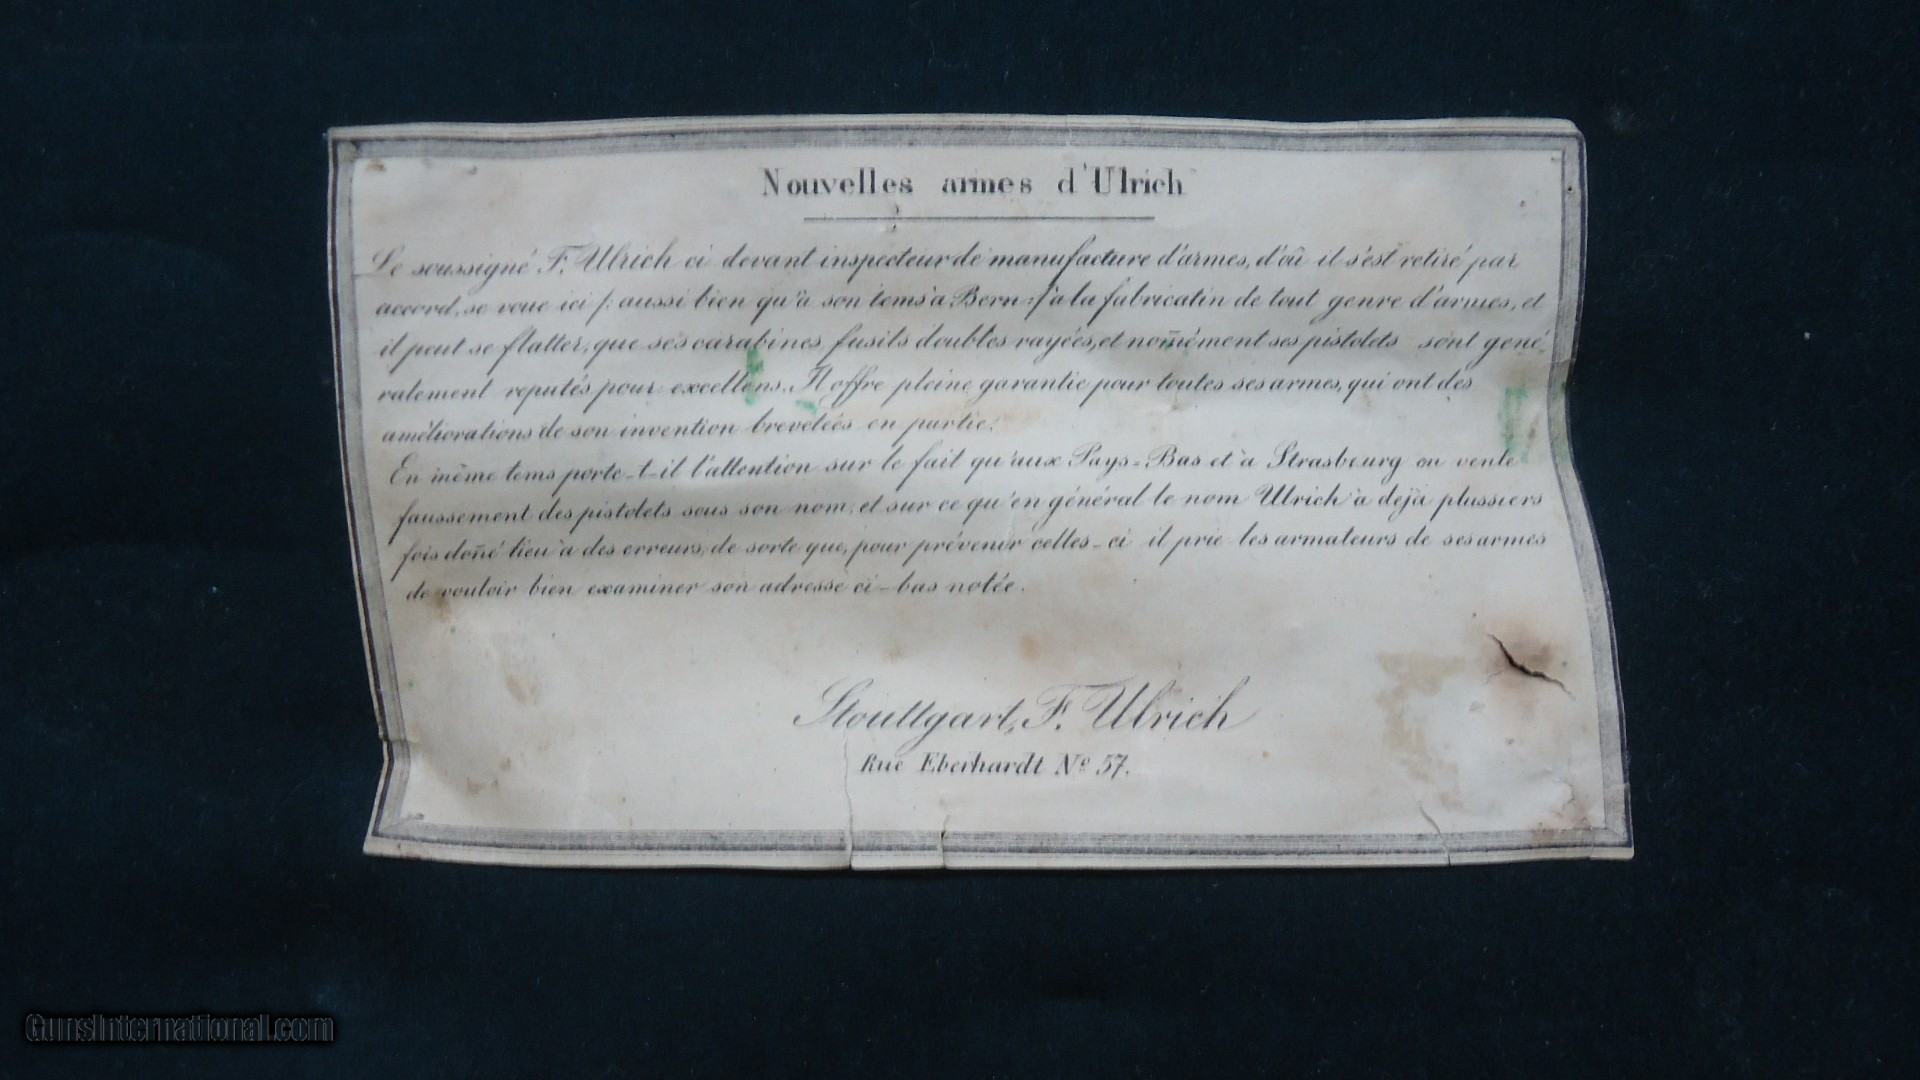 Nouvelles armes d'Ulrich
Le soussigné F. Ulrich ci devant inspecteur de manufacture d'armes, d'où il s'est retiré par
accord, se voue ici /: aussi bien qu'à son tems à Bern :/ à la fabricatin de tout genre d'armes, et
il peut se flatter, que ses carabines, fusils doubles rayées, et nom̄ément ses pistolets sont géné-
ralement reputés pour excellens. Il offre pleine garantie pour toutes ses armes, qui ont des
améliorations de son invention brevetées en partie.
En même tems porte-t-il l'attention sur le fait qu'aux Pays-Bas et à Strasbourg on vente
faussement des pistolets sous son nom, et sur ce qu'en général le nom Ulrich à dejà plussiers
fois don̄é lieu à des erreurs, de sorte que, pour prévenir celles-ci il prie les armateurs de ses armes
de vouloir bien examiner son adresse ci-bas notée.
Stouttgart, F. Ulrich
Rue Eberhardt Nº 57.
GunsInternational.com